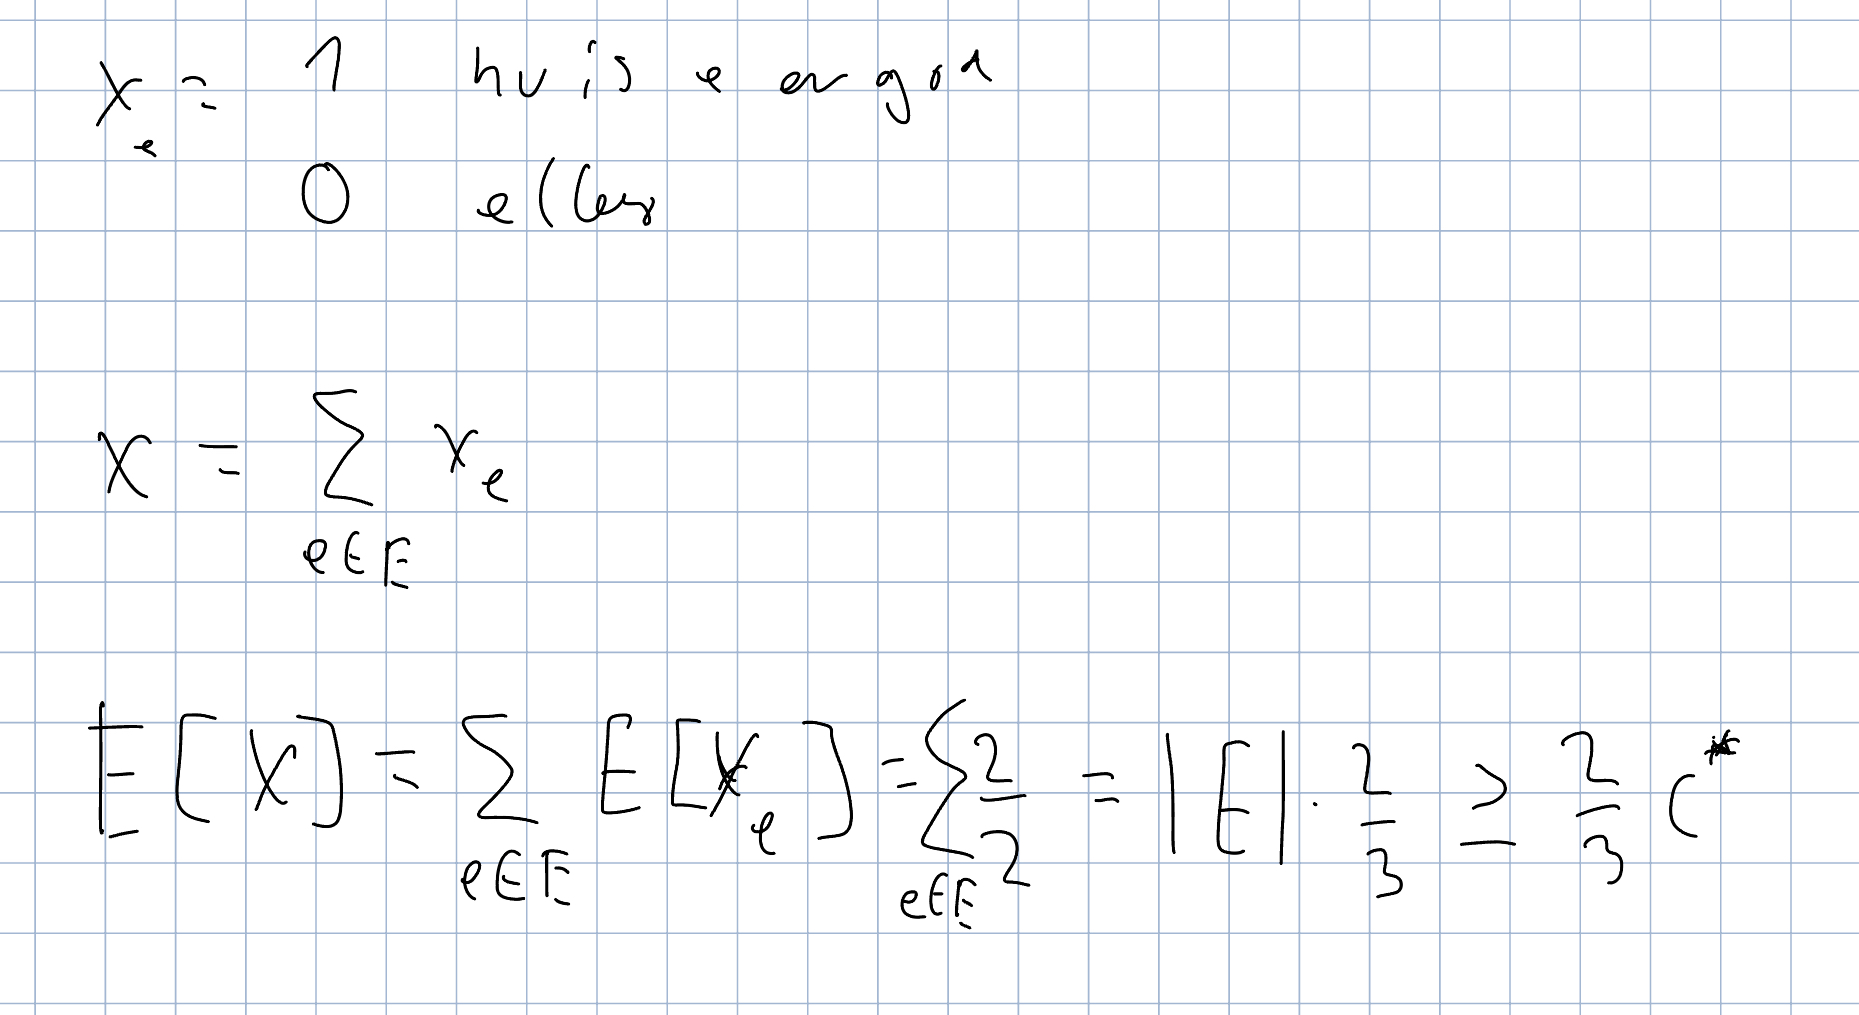 X_e = 1 hvis e er god
0 ellers
X = Σ_{e∈E} X_e
E[X] = Σ_{e∈E} E[X_e] = Σ_{e∈E} 2/2 = |E| · 2/3 ≥ 2/3 C*